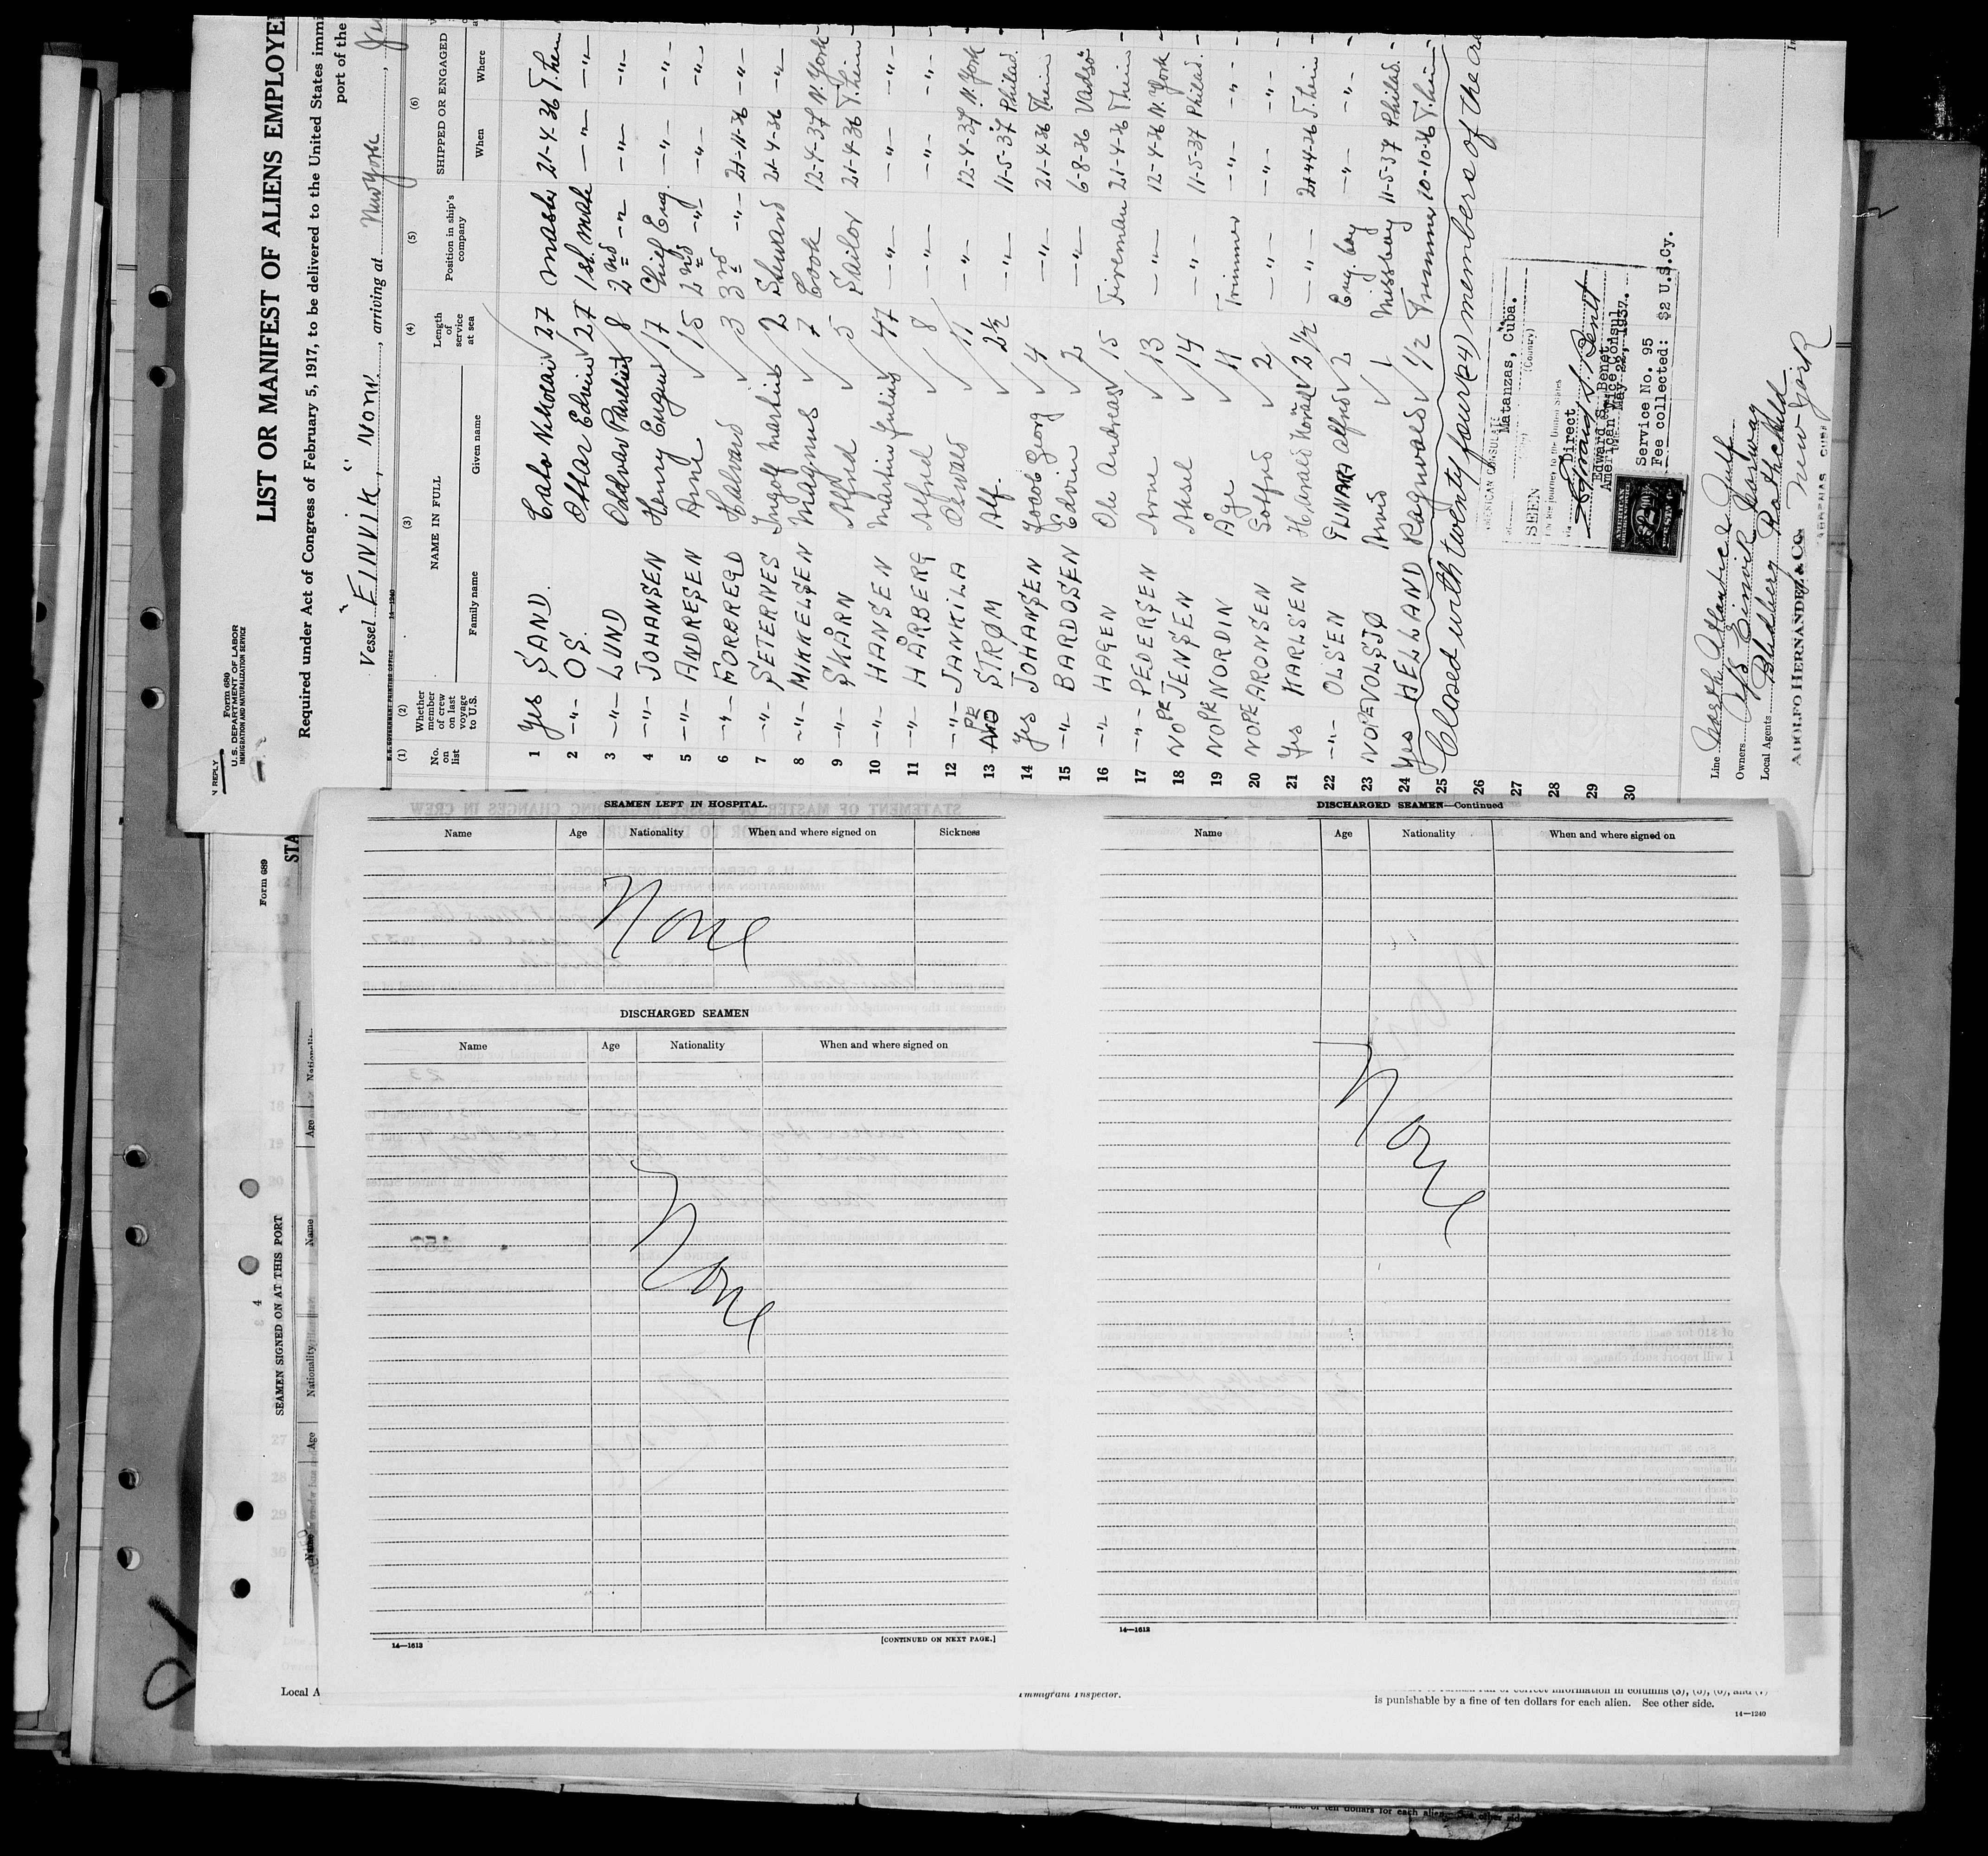 LIST OR MANIFEST OF ALIENS EMPLOYE
Form 680
U. S. DEPARTMENT OF LABOR
IMMIGRATION AND NATURALIZATION SERVICE
N REPLY
Required under Act of Congress of February 5, 1917, to be delivered to the United States immi
port of the
Vessel "EINVIK", Norw., arriving at New York,
(1) (2) (3) (4) (5) (6)
No. on list
Whether member of crew on last voyage to U.S.
NAME IN FULL
Family name Given name
Length of service at sea
Position in ship's company
SHIPPED OR ENGAGED
When Where
1 Yes SAND. Nikolai 27 Master 21-4-36 T.hein
2 -"- OS. Ottar Edvin 27 1st. Mate -"- -"-
3 -"- LUND 8 2nd -"- -"- -"-
4 -"- JOHANSEN Henry Eugen 17 Chief Eng. -"- -"-
5 -"- ANDRESEN Arne 15 2nd -"- -"- -"-
6 -"- FORBREGD Halvard 3 3rd -"- 21-11-36 -"-
7 -"- SETERNES Ingolf Martin 2 Steward 21-4-36 -"-
8 -"- MIKKELSEN Magnus 7 Cook 12-4-37 N. York
9 -"- SKÅRN Alfred 5 Sailor 21-4-36 T.hein
10 -"- HANSEN Martin Julius 47 -"- -"- -"-
11 -"- HÅRBERG Alfred 8 -"- -"- -"-
12 -"- JANKILA Oswald 11 -"- 12-4-37 N. York
13 NO PE STRØM Alf. 2½ -"- 11-5-37 Philad.
14 Yes JOHANSEN Jacob Georg 4 -"- 21-4-36 T.hein
15 -"- BARDOSEN Edvin 2 -"- 6-8-36 Vadsö
16 -"- HAGEN Ole Andreas 15 Fireman 21-4-36 T.hein
17 -"- PEDERSEN Arne 13 -"- 12-4-36 N. York
18 NO PE JENSEN Aksel 14 -"- 11-5-37 Philad.
19 NO PE NORDIN Åge 11 Trimmer -"- -"-
20 NO PE ARONSEN 2 -"- -"- -"-
21 Yes KARLSEN Harald 2½ -"- 21-4-36 T.hein
22 -"- OLSEN EINAR Alfred 2 Eng. boy -"- -"-
23 NO PE VOLSJØ Arvid 1 Messboy 11-5-37 Philad.
24 Yes HELLAND Ragnvald 1½ Trimmer 10-10-36 T.hein
25 Closed with twenty four (24) members of the cre
26
27
28
29
30
AMERICAN CONSULATE
Matanzas, Cuba.
(Country)
SEEN
For the journey to the United States
via Direct
Edward S. Benet
Edward S. Benet,
American Vice Consul
May 22, 1937.
Service No. 95
Fee collected: $2 U.S.Cy.
Line North Atlantic & Gulf
Owners A/S Einvik Norway
Local Agents Blidberg Rothchild
New York
ADOLFO HERNANDEZ & Co.
SEAMEN LEFT IN HOSPITAL.
Name Age Nationality When and where signed on Sickness
None
DISCHARGED SEAMEN
Name Age Nationality When and where signed on
None
14—1613
[CONTINUED ON NEXT PAGE.]
DISCHARGED SEAMEN—Continued
Name Age Nationality When and where signed on
None
14—1613
Form 689
STA
SEAMEN SIGNED ON AT THIS PORT
Name Age Nationality Name Age
Local A
Immigrant Inspector.
is punishable by a fine of ten dollars for each alien. See other side.
14—1240